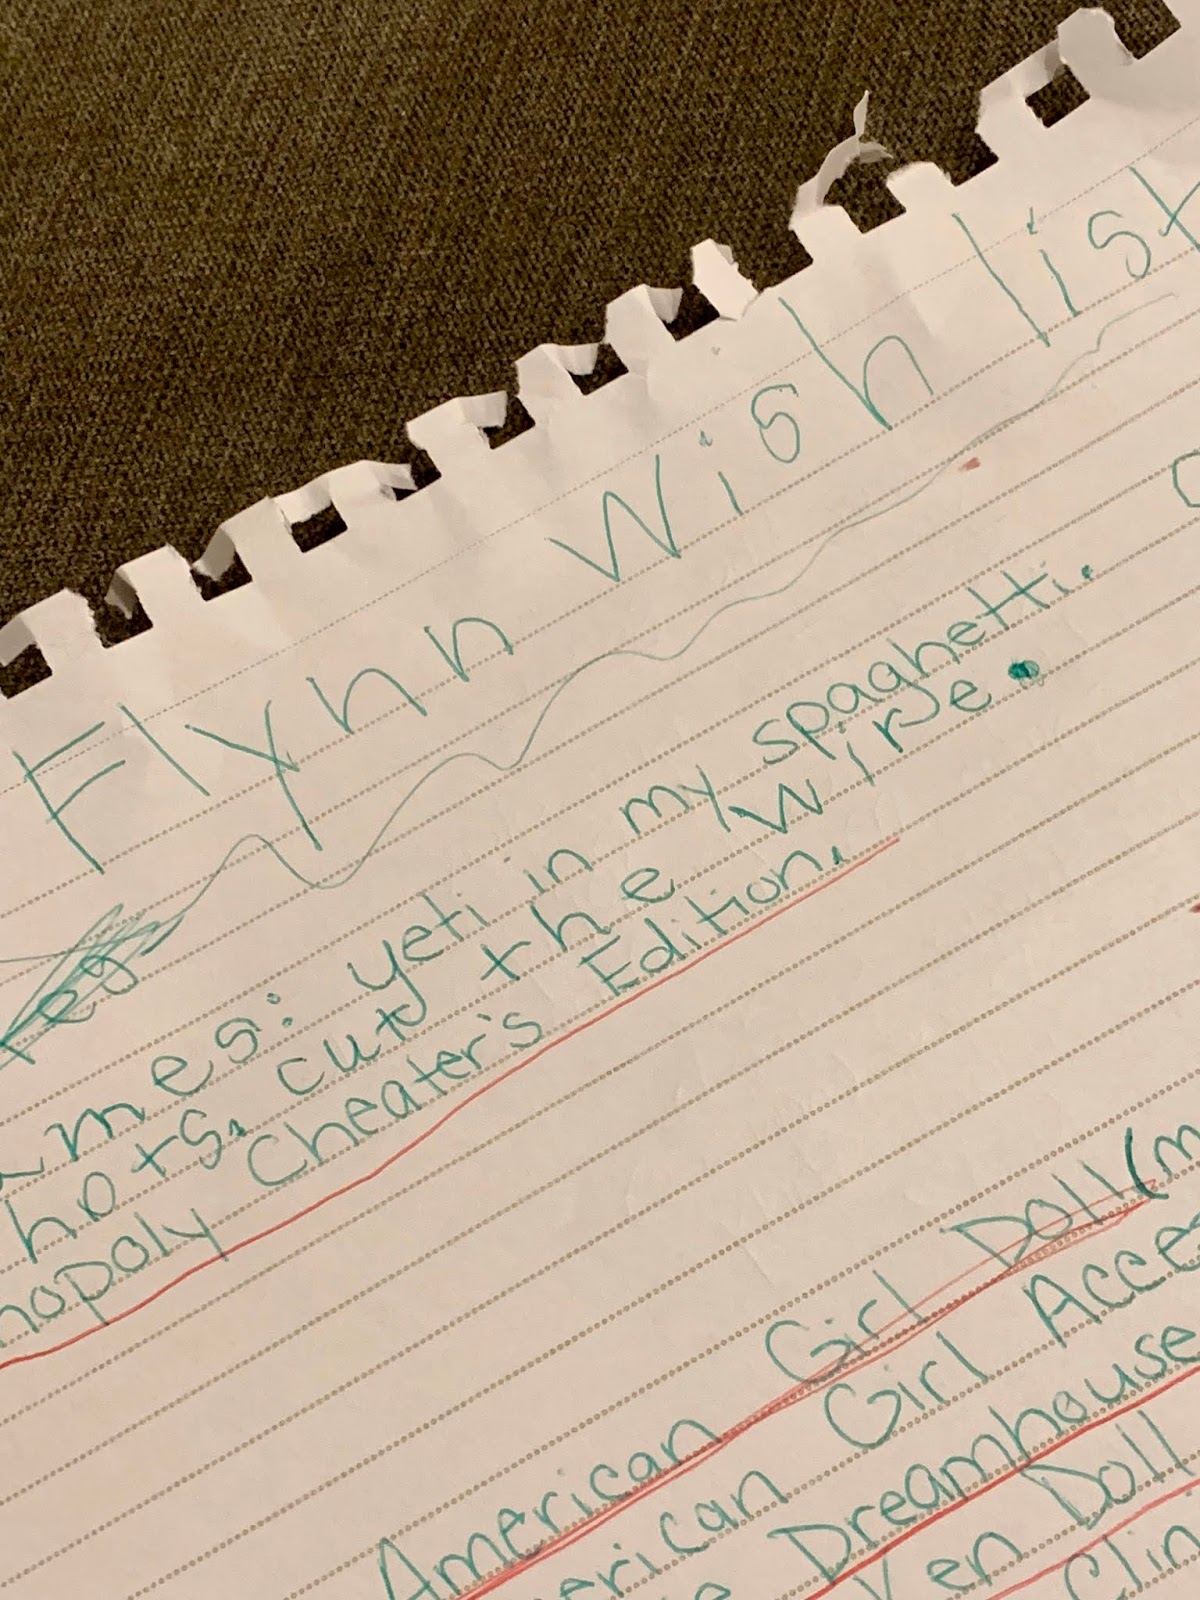 Flynn Wish list
ames: yeti in my spaghetti.
hots. cut the wire.
nopoly Cheater's Edition.
American Girl Doll (m
erican Girl Acce
e Dreamhouse
Ken Doll
Clin